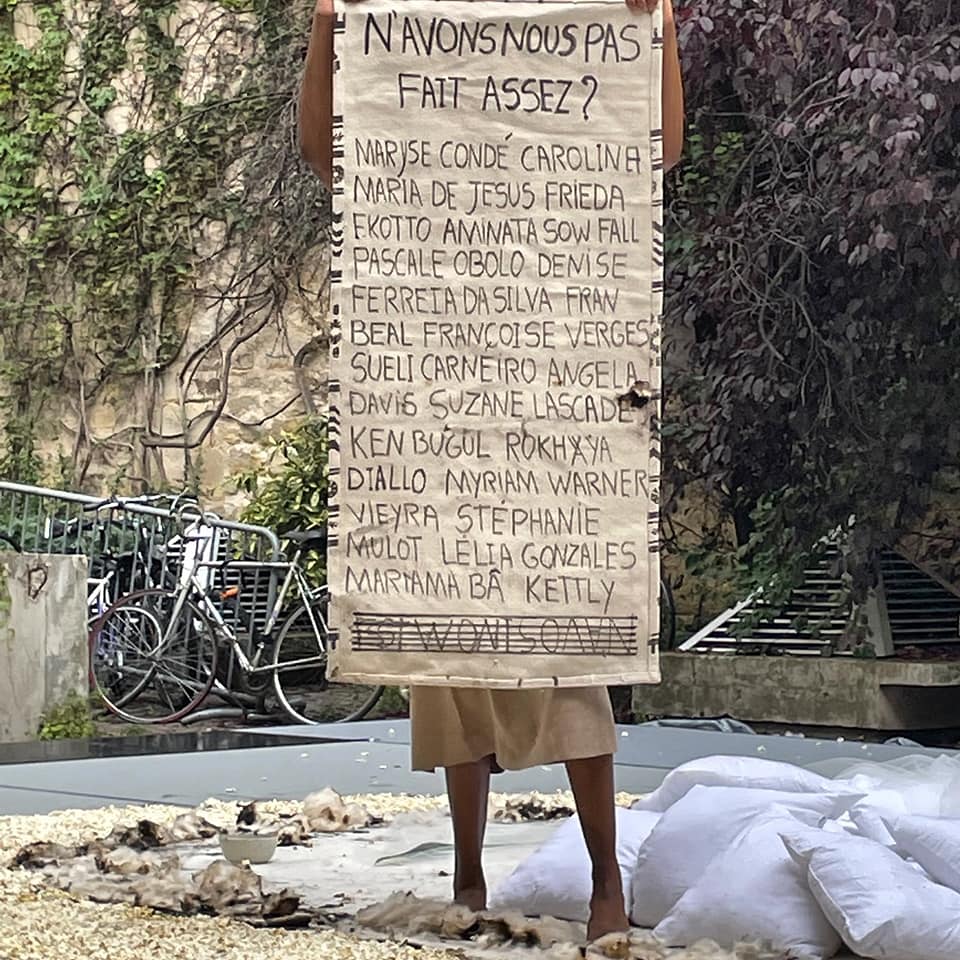 N'AVONS NOUS PAS
FAIT ASSEZ ?
MARYSE CONDÉ CAROLINA
MARIA DE JESUS FRIEDA
EKOTTO AMINATA SOW FALL
PASCALE OBOLO DENISE
FERREIA DA SILVA FRAN
BEAL FRANÇOISE VERGES
SUELI CARNEIRO ANGELA
DAVIS SUZANE LASCADE
KEN BUGUL ROKHAYA
DIALLO MYRIAM WARNER
VIEYRA STÉPHANIE
MULOT LÉLIA GONZALES
MARIAMA BÂ KETTLY